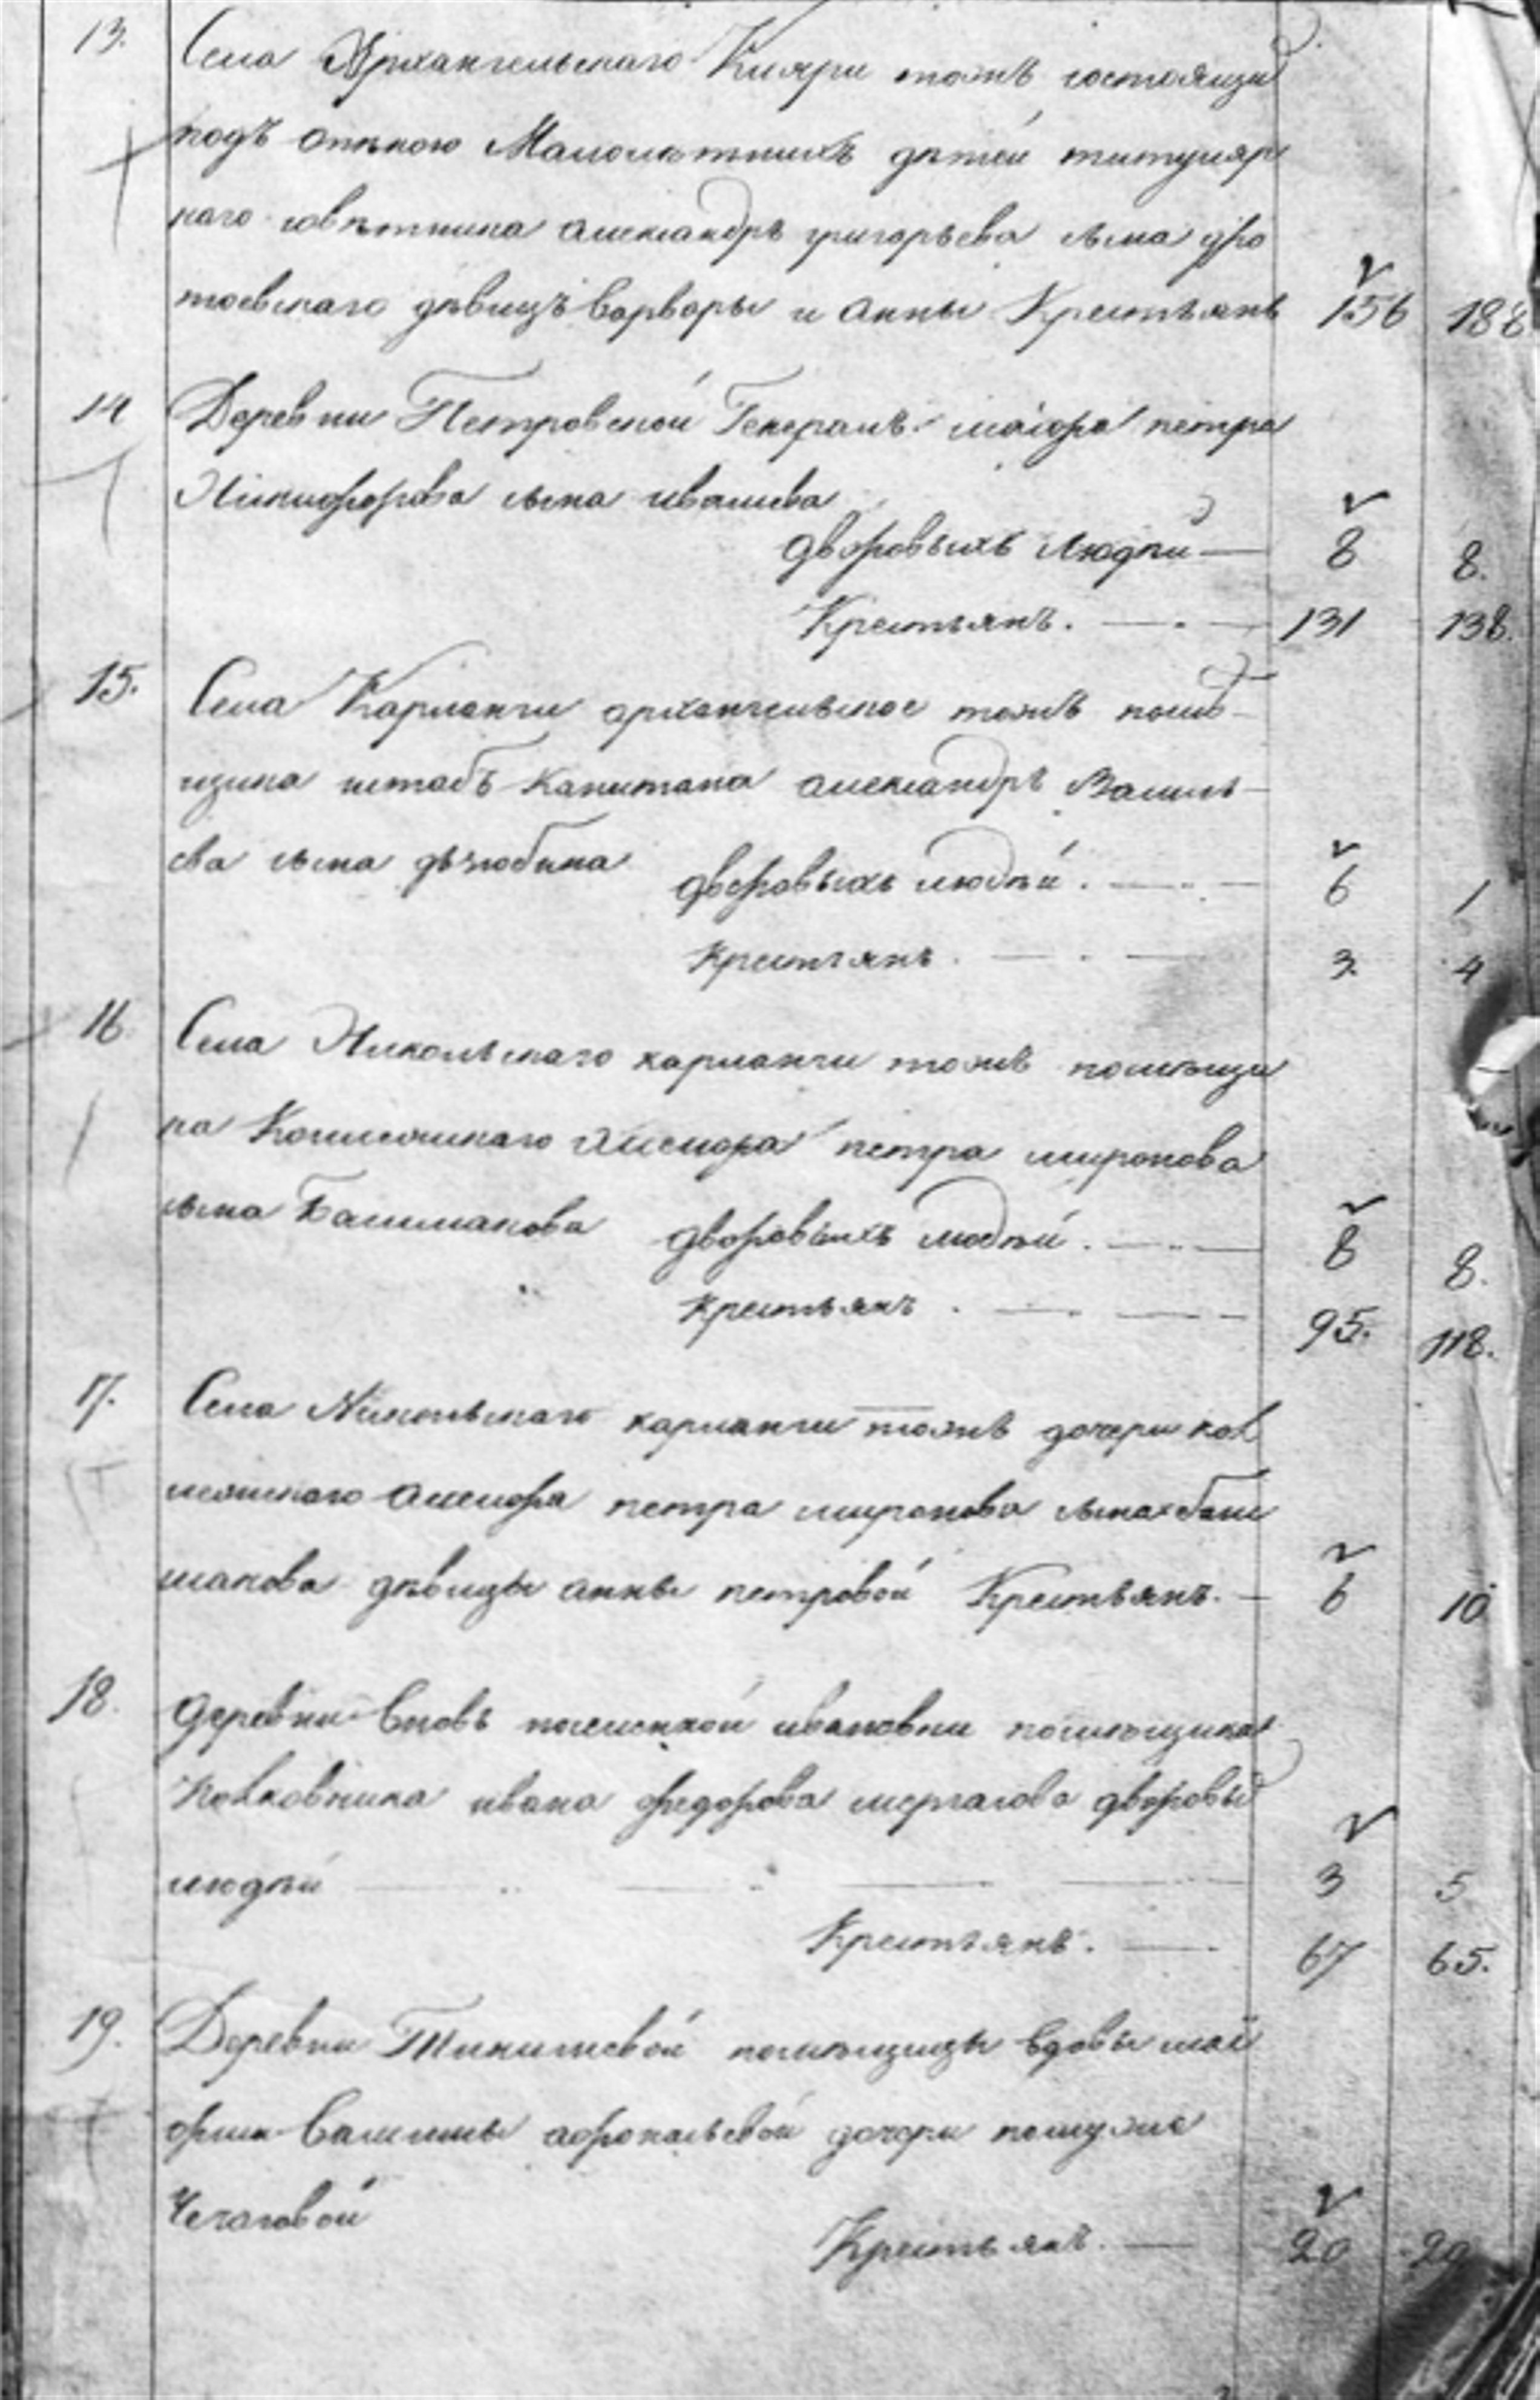 13. Села Архангельскаго Кияри тожъ состоящи
подъ опекою Малолѣтнихъ дѣтей титуляр
наго совѣтника александръ григорьева сына дро
тоевскаго дѣвицъ варвары и анны Крестьянъ 156 188
14 Деревни Петровской Генералъ маіора петра
Никифорова сына ивашева
дворовыхъ людѣй — 8 8.
Крестьянъ. — 131 138.
15. Села Карлангии архангельское тожъ помѣ-
щика штабъ капитана александръ Василь-
ева сына дѣлюбина дворовыхъ людѣй. — 6 1
Крестьянъ. — 3. 4
16 Села Никольскаго карланги тожъ помѣщи
ка Колежскаго Ассесора петра миронова
сына Башмакова дворовыхъ людѣй. — 8 8.
Крестьянъ. — 95. 118.
17. Села Никольскаго карланги тожъ дочери кол
лежскаго ассесора петра миронова сына баш
макова дѣвицы анны петровой Крестьянъ. — 6 10
18. деревни вновь поселенной ивановки помѣщика
полковника ивана федорова дворовы
людѣй — 3 5
Крестьянъ. — 67 65.
19. Деревни помѣщицы вдовы маі
орши дочери помужѣ
Чегаговой Крестьянъ. — 20 20